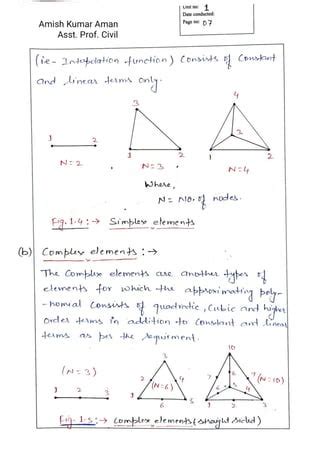 Amish Kumar Aman
Asst. Prof. Civil
Unit no: 1
Date conducted:
Page no: 07
(ie- Interpolation function) Consists of Constant
and linear terms only.
1 2
N = 2
3
1 2
N = 3
4
3
1 2
N = 4
Where,
N = No. of nodes.
Fig. 1.4 :→ Simplex elements
(b) Complex elements :→
The Complex elements are another types of
elements for which the approximating poly-
-nomial Consists of quadratic, Cubic and higher
Order terms in addition to Constant and linear
terms as per the requirment.
(N = 3)
1 2 3
3
2 4
(N=6)
1 6 5
10
(N = 10)
1 2 3
Fig. 1.5 :→ Complex elements (straight sided)